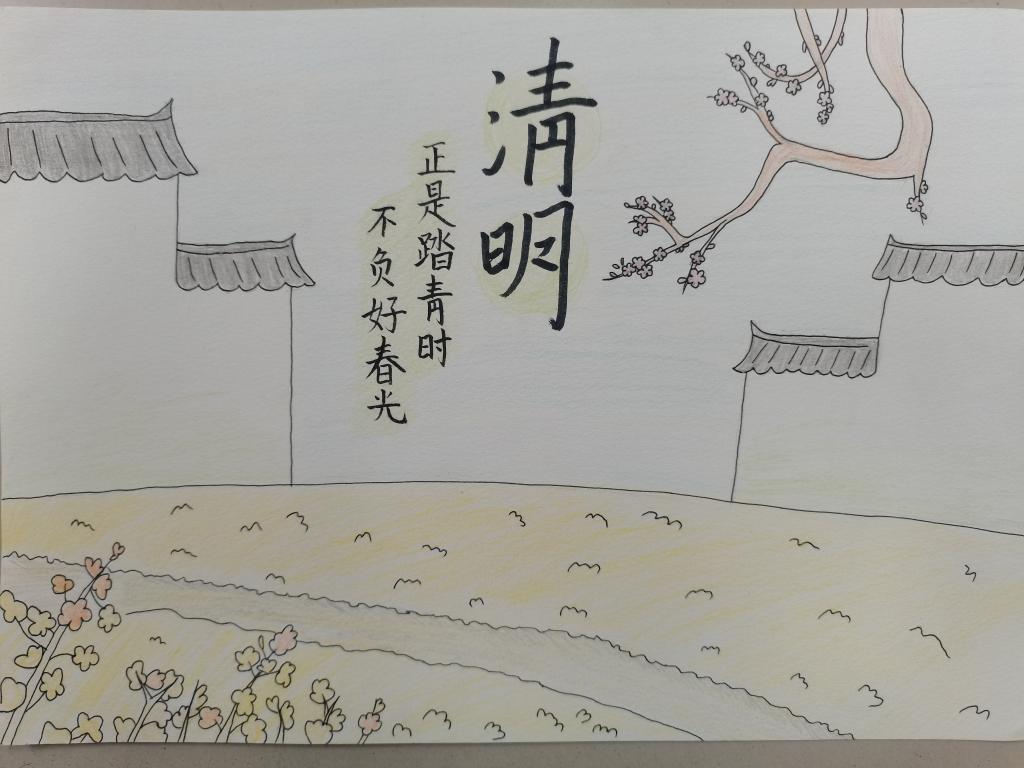 清明
正是踏青时
不负好春光